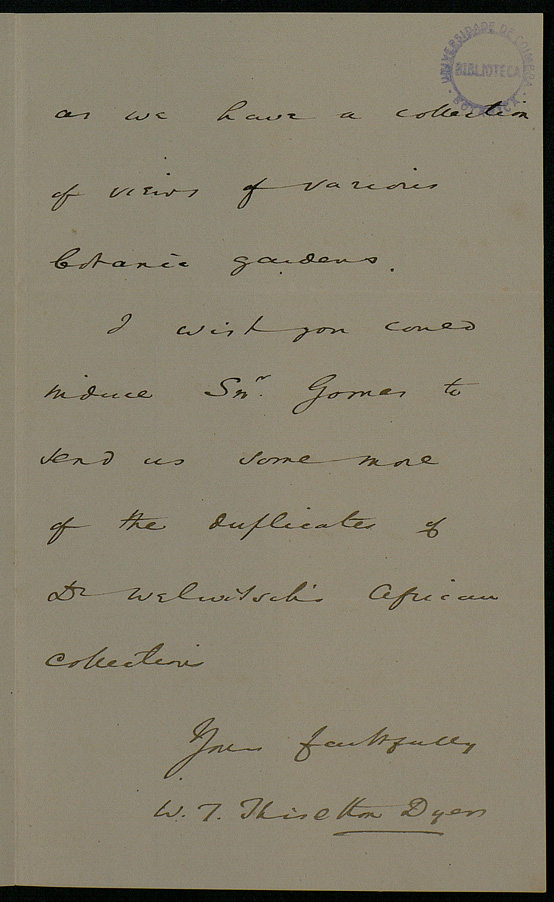 UNIVERSIDADE DE COIMBRA
BIBLIOTECA
BOTANICA
as we have a collection
of views of various
botanic gardens.
I wish you could
induce Snr. Gomes to
send us some more
of the duplicates of
Dr Welwitsch's African
collections
Yours faithfully
W. T. Thiselton Dyer